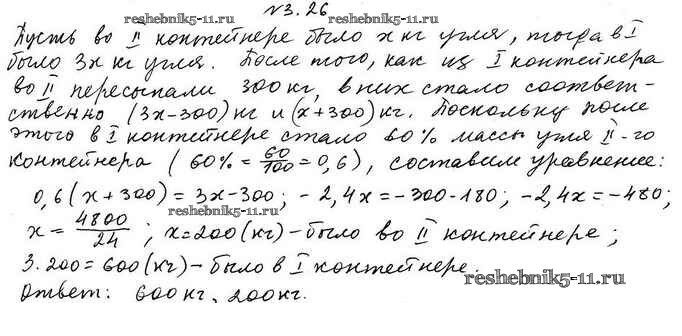 №3.26
reshebnik5-11.ru
reshebnik5-11.ru
Пусть во II контейнере было x кг угля, тогда в I
было 3x кг угля. После того, как из I контейнера
во II пересыпали 300 кг, в них стало соответ-
ственно (3x-300) кг и (x+300) кг. Поскольку после
этого в I контейнере стало 60% массы угля II-го
контейнера (60% = 60/100 = 0,6), составим уравнение:
0,6(x+300) = 3x-300; -2,4x = -300-180; -2,4x = -480;
reshebnik5-11.ru
x = 4800/24; x = 200 (кг) - было во II контейнере;
3·200 = 600 (кг) - было в I контейнере.
reshebnik5-11.ru
Ответ: 600 кг, 200 кг.